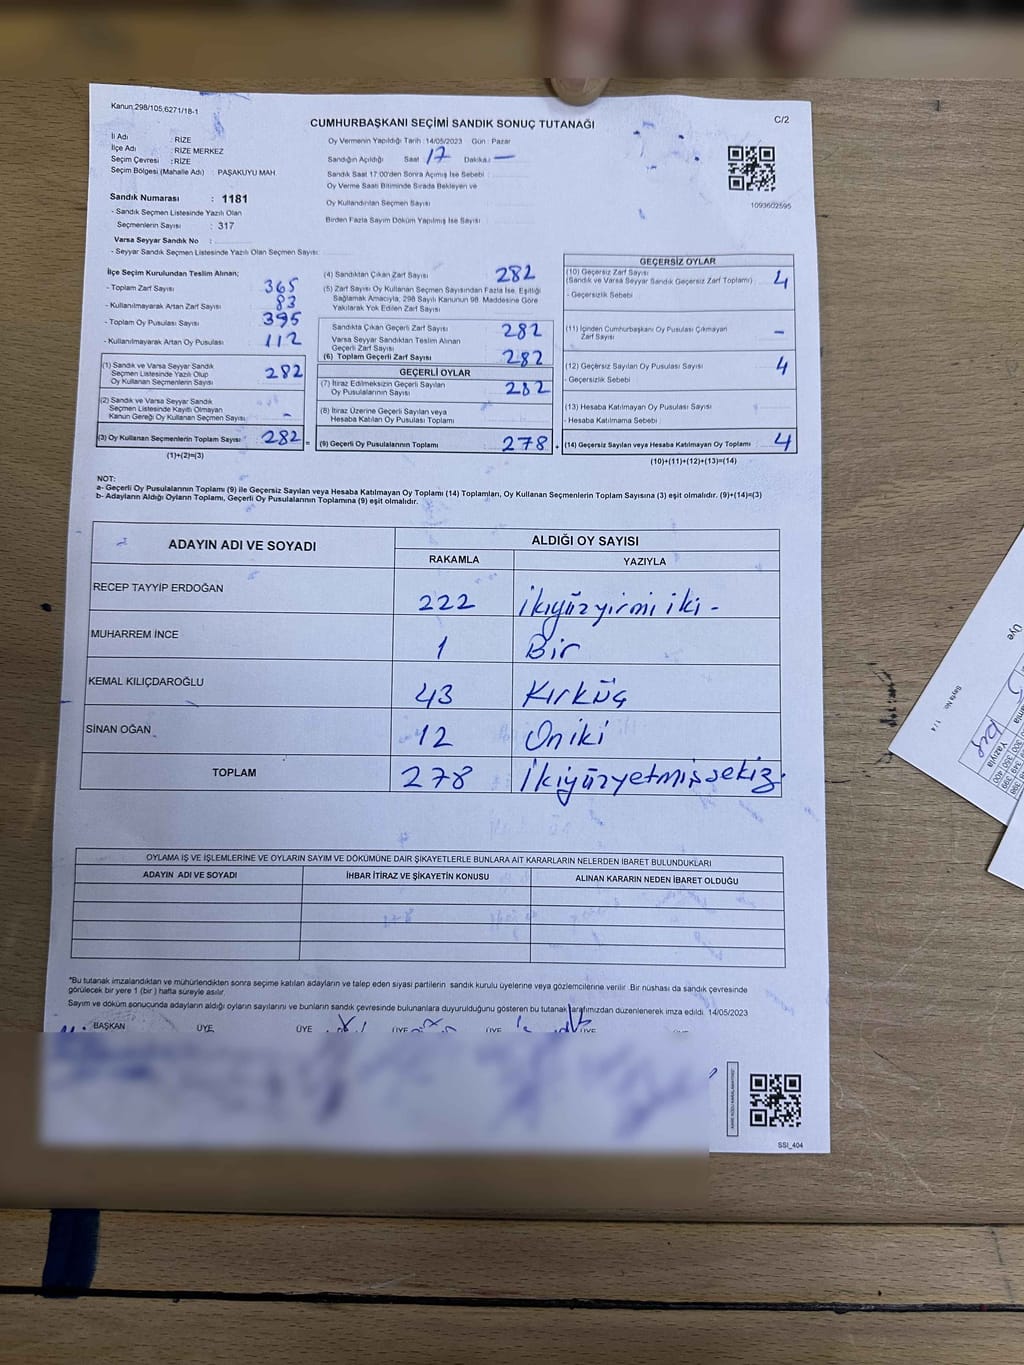 Kanun,298/105,6271/18-1
CUMHURBAŞKANI SEÇİMİ SANDIK SONUÇ TUTANAĞI
C/2
İl Adı : RİZE
İlçe Adı : RİZE MERKEZ
Seçim Çevresi : RİZE
Seçim Bölgesi (Mahalle Adı) : PAŞAKUYU MAH.
Oy Vermenin Yapıldığı Tarih : 14/05/2023 Gün : Pazar
Sandığın Açıldığı Saat : 17 Dakika : —
Sandık Saat 17:00'den Sonra Açımış İse Sebebi :
Oy Verme Saati Bitiminde Sırada Bekleyen ve
Oy Kullandırılan Seçmen Sayısı :
Birden Fazla Sayım Döküm Yapılmış İse Sayısı :
1093602595
Sandık Numarası : 1181
- Sandık Seçmen Listesinde Yazılı Olan
Seçmenlerin Sayısı : 317
Varsa Seyyar Sandık No :
- Seyyar Sandık Seçmen Listesinde Yazılı Olan Seçmen Sayısı:
İlçe Seçim Kurulundan Teslim Alınan;
- Toplam Zarf Sayısı 365
- Kullanılmayarak Artan Zarf Sayısı 83
- Toplam Oy Pusulası Sayısı 395
- Kullanılmayarak Artan Oy Pusulası 112
(1) Sandık ve Varsa Seyyar Sandık
Seçmen Listesinde Yazılı Olup
Oy Kullanan Seçmenlerin Sayısı 282
(2) Sandık ve Varsa Seyyar Sandık
Seçmen Listesinde Kayıtlı Olmayan
Kanun Gereği Oy Kullanan Seçmen Sayısı -
(3) Oy Kullanan Seçmenlerin Toplam Sayısı 282 =
(1)+(2)=(3)
(4) Sandıktan Çıkan Zarf Sayısı 282
(5) Zarf Sayısı Oy Kullanan Seçmen Sayısından Fazla İse, Eşitliği
Sağlamak Amacıyla, 298 Sayılı Kanunun 98. Maddesine Göre
Yakılarak Yok Edilen Zarf Sayısı :
Sandıkta Çıkan Geçerli Zarf Sayısı 282
Varsa Seyyar Sandıktan Teslim Alınan
Geçerli Zarf Sayısı
(6) Toplam Geçerli Zarf Sayısı 282
GEÇERLİ OYLAR
(7) İtiraz Edilmeksizin Geçerli Sayılan
Oy Pusulalarının Sayısı 282
(8) İtiraz Üzerine Geçerli Sayılan veya
Hesaba Katılan Oy Pusulası Toplamı
(9) Geçerli Oy Pusulalarının Toplamı 278 +
GEÇERSİZ OYLAR
(10) Geçersiz Zarf Sayısı
(Sandık ve Varsa Seyyar Sandık Geçersiz Zarf Toplamı) : 4
- Geçersizlik Sebebi :
(11) İçinden Cumhurbaşkanı Oy Pusulası Çıkmayan
Zarf Sayısı -
(12) Geçersiz Sayılan Oy Pusulası Sayısı 4
- Geçersizlik Sebebi :
(13) Hesaba Katılmayan Oy Pusulası Sayısı
- Hesaba Katılmama Sebebi :
(14) Geçersiz Sayılan veya Hesaba Katılmayan Oy Toplamı 4
(10)+(11)+(12)+(13)=(14)
NOT:
a- Geçerli Oy Pusulalarının Toplamı (9) ile Geçersiz Sayılan veya Hesaba Katılmayan Oy Toplamı (14) Toplamları, Oy Kullanan Seçmenlerin Toplam Sayısına (3) eşit olmalıdır. (9)+(14)=(3)
b- Adayların Aldığı Oyların Toplamı, Geçerli Oy Pusulalarının Toplamına (9) eşit olmalıdır.
ADAYIN ADI VE SOYADI
ALDIĞI OY SAYISI
RAKAMLA YAZIYLA
RECEP TAYYİP ERDOĞAN 222 ikiyüzyirmi iki -
MUHARREM İNCE 1 Bir
KEMAL KILIÇDAROĞLU 43 Kırküç
SİNAN OĞAN 12 Oniki
TOPLAM 278 ikiyüzyetmişsekiz.
OYLAMA İŞ VE İŞLEMLERİNE VE OYLARIN SAYIM VE DÖKÜMÜNE DAİR ŞİKAYETLERLE BUNLARA AİT KARARLARIN NELERDEN İBARET BULUNDUKLARI
ADAYIN ADI VE SOYADI İHBAR İTİRAZ VE ŞİKAYETİN KONUSU ALINAN KARARIN NEDEN İBARET OLDUĞU
*Bu tutanak imzalandıktan ve mühürlendikten sonra seçime katılan adayların ve talep eden siyasi partilerin sandık kurulu üyelerine veya gözlemcilerine verilir. Bir nüshası da sandık çevresinde
görülecek bir yere 1 (bir ) hafta süreyle asılır.
Sayım ve döküm sonucunda adayların aldığı oyların sayılarını ve bunların sandık çevresinde bulunanlara duyurulduğunu gösteren bu tutanak tarafımızdan düzenlenerek imza edildi. 14/05/2023
BAŞKAN ÜYE ÜYE ÜYE ÜYE ÜYE
SSI_404
Üye
Sayfa No: 1 / 4
Yazıyla
bir